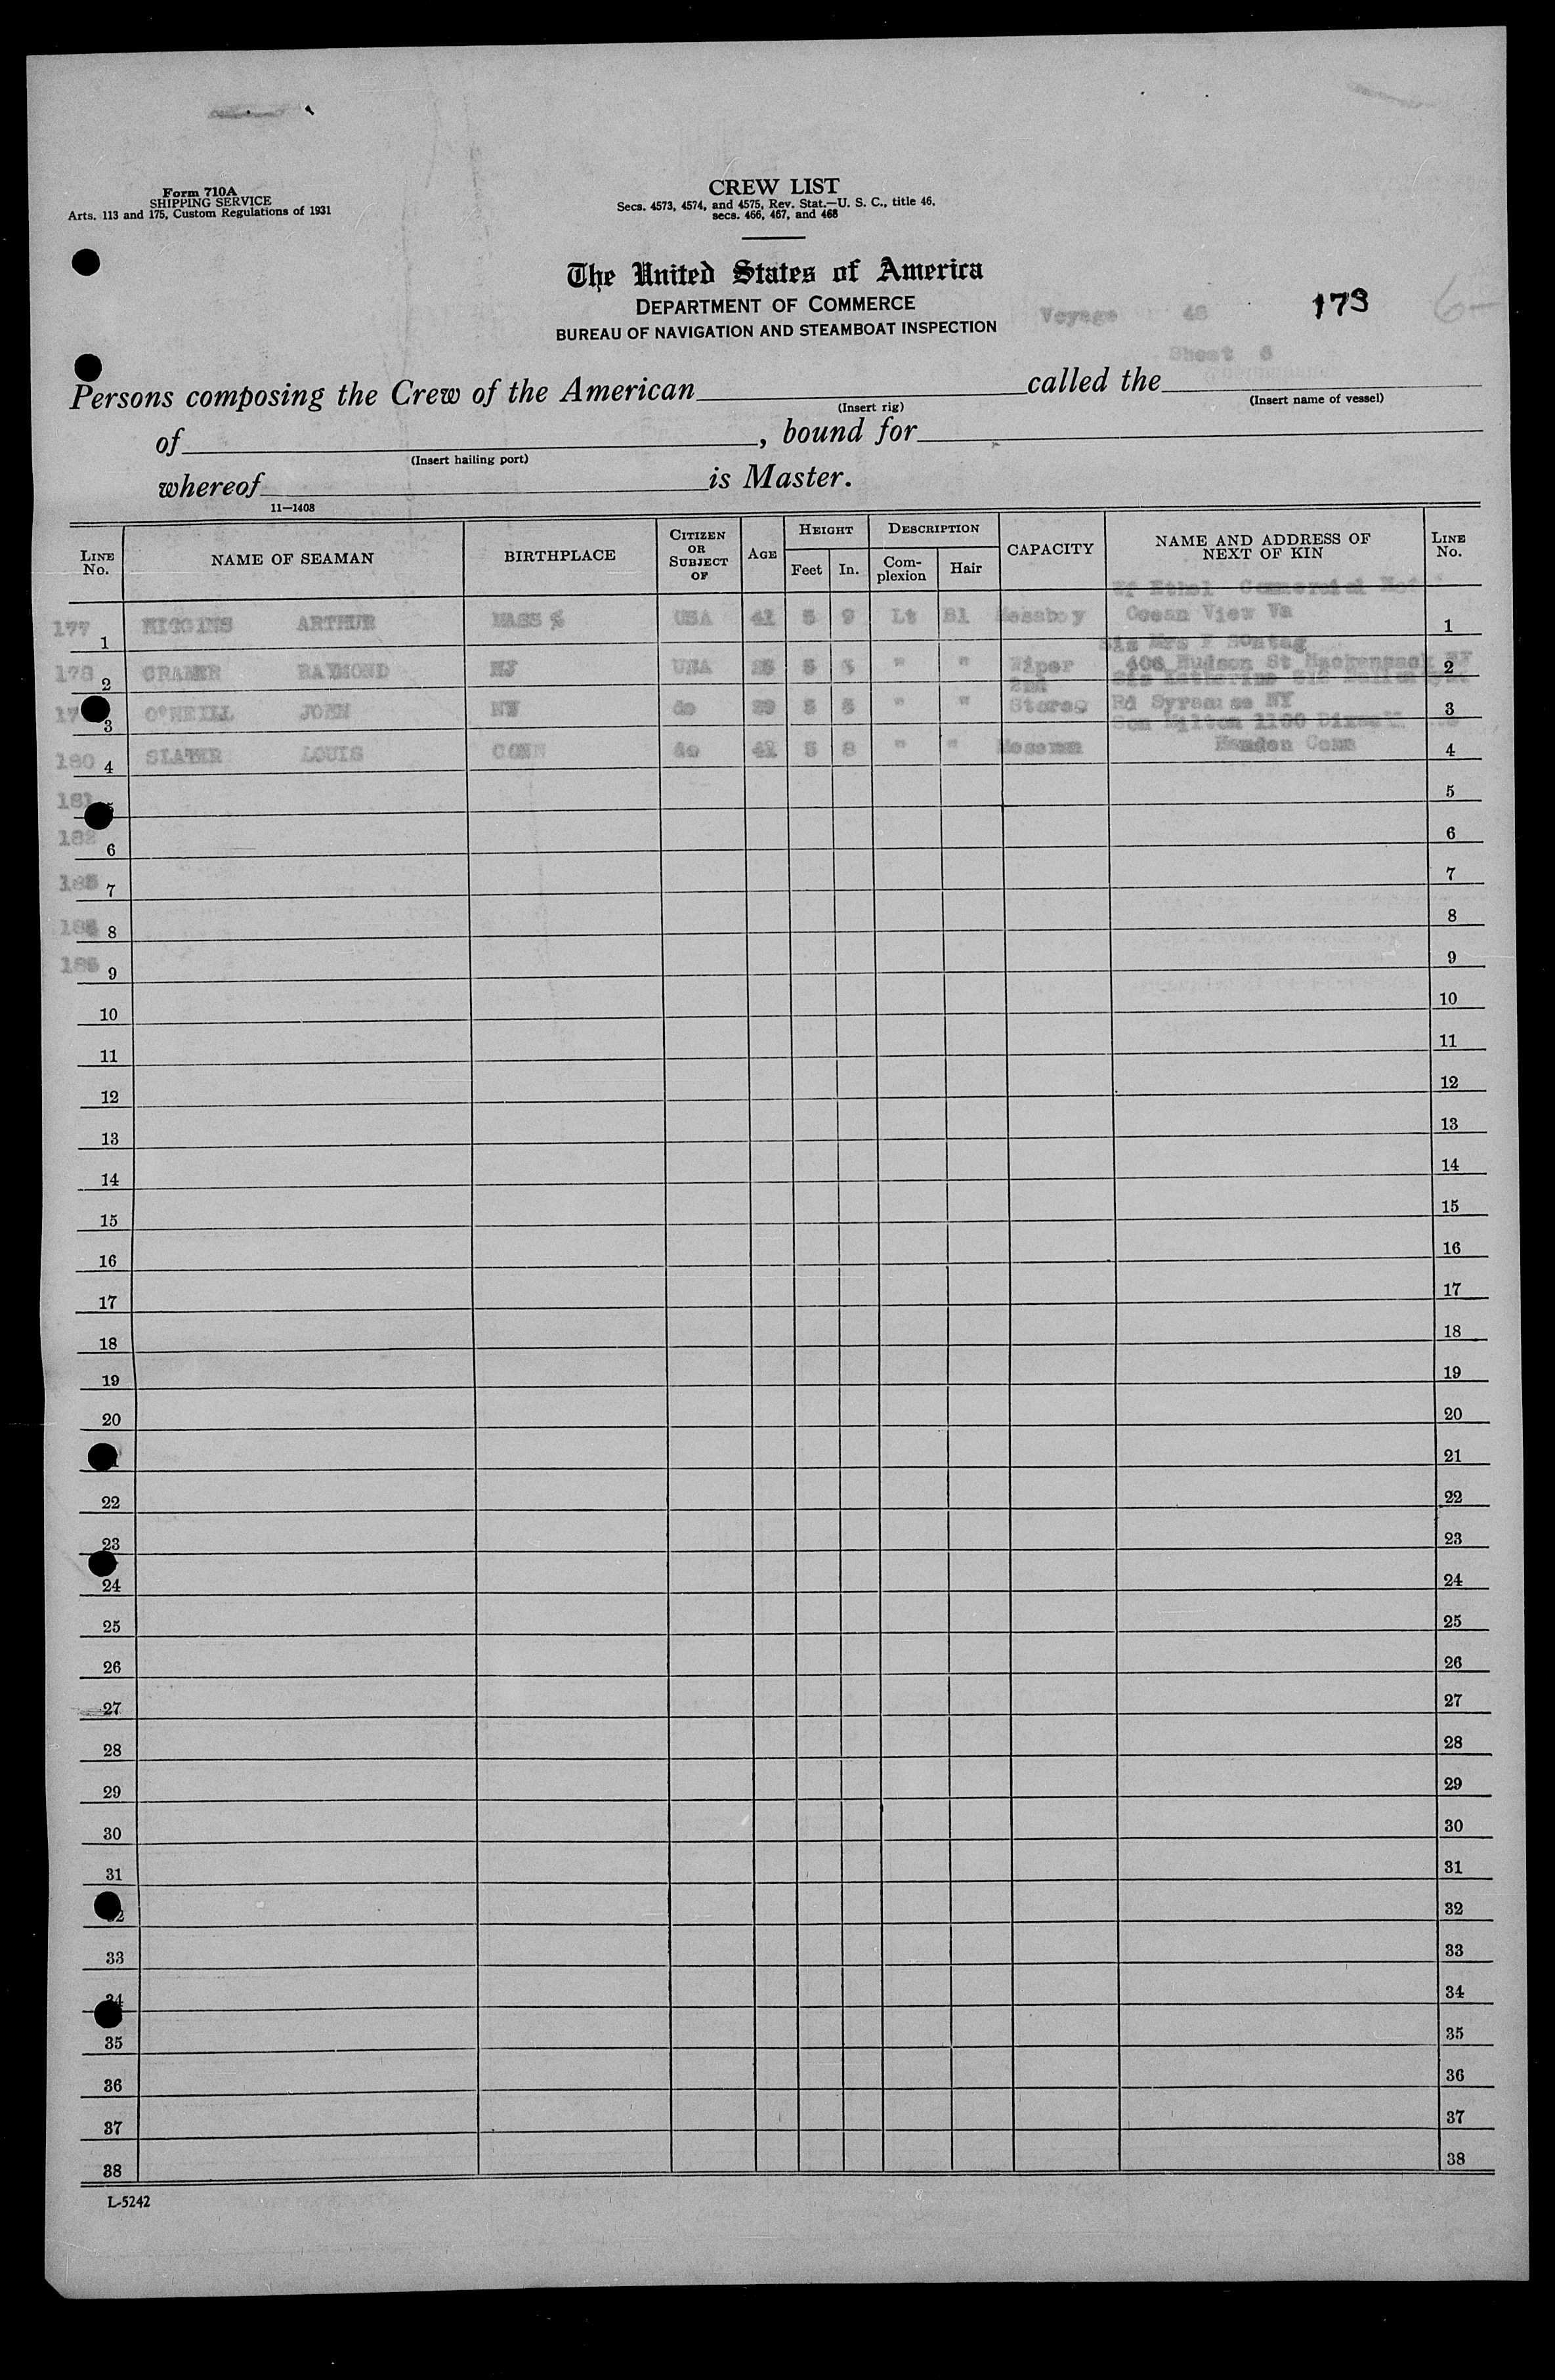 Form 710A
SHIPPING SERVICE
Arts. 113 and 175, Custom Regulations of 1931
CREW LIST
Secs. 4573, 4574, and 4575, Rev. Stat.—U. S. C., title 46,
secs. 466, 467, and 468
The United States of America
DEPARTMENT OF COMMERCE
BUREAU OF NAVIGATION AND STEAMBOAT INSPECTION
Voyage 173 6-
Sheet 6
Persons composing the Crew of the American called the
(Insert rig) (Insert name of vessel)
of , bound for
(Insert hailing port)
whereof is Master.
11—1408
LINE No. NAME OF SEAMAN BIRTHPLACE CITIZEN OR SUBJECT OF AGE HEIGHT Feet In. DESCRIPTION Complexion Hair CAPACITY NAME AND ADDRESS OF NEXT OF KIN LINE No.
Wf Ethel Commercial
177 1 HIGGINS ARTHUR MASS USA 5 9 Lt Bl Messboy Ocean View Va 1
Sis Mrs F Sontag
178 2 CRAMER RAYMOND NJ USA 5 " " Wiper 406 Hudson St Hackensack NJ 2
2nd Sis Katherine
3 O'NEILL JOHN NY do 5 " " Stores Rd Syracuse NY 3
Son Milton 1100
180 4 SLATER LOUIS CONN do 42 5 8 " " Messman Hamden Conn 4
181 5
182 6 6
7 7
8 8
9 9
10 10
11 11
12 12
13 13
14 14
15 15
16 16
17 17
18 18
19 19
20 20
21
22 22
23 23
24 24
25 25
26 26
27 27
28 28
29 29
30 30
31 31
32
33 33
34 34
35 35
36 36
37 37
38 38
L-5242